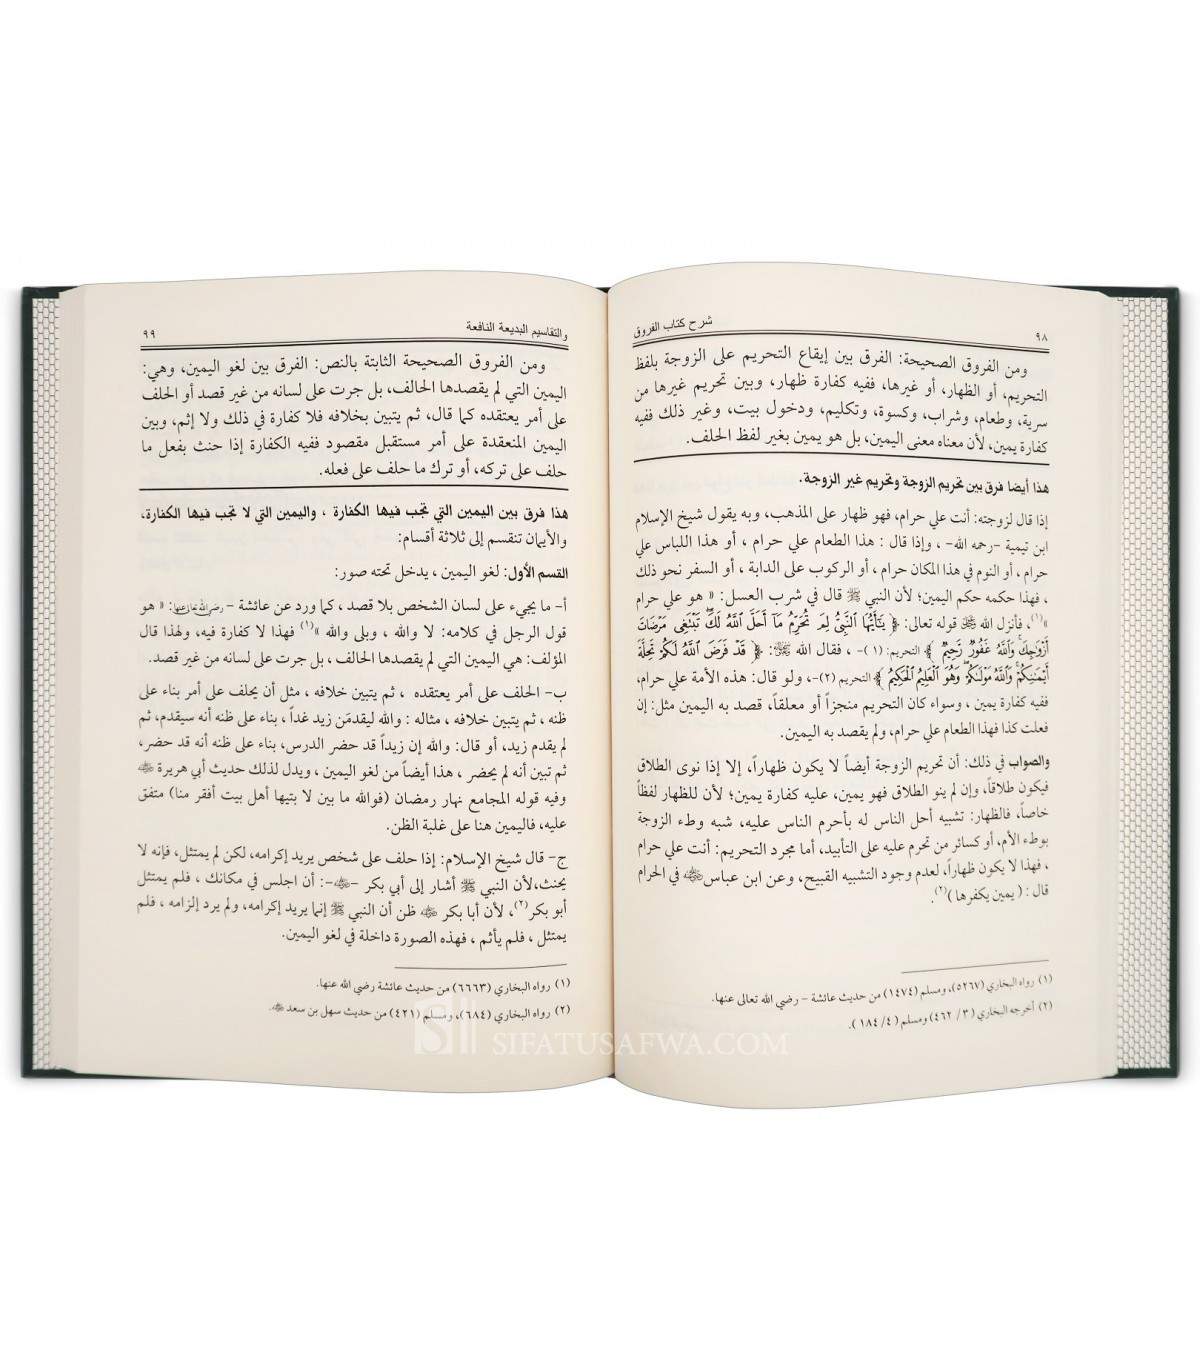 شرح كتاب الفروق
٩٨
ومن الفروق الصحيحة: الفرق بين إيقاع التحريم على الزوجة بلفظ
التحريم، أو الظهار، أو غيرها، ففيه كفارة ظهار، وبين تحريم غيرها من
سرية، وطعام، وشراب، وكسوة، وتكليم، ودخول بيت، وغير ذلك ففيه
كفارة يمين، لأن معناه معنى اليمين، بل هو يمين بغير لفظ الحلف.
هذا أيضا فرق بين تحريم الزوجة وتحريم غير الزوجة.
إذا قال لزوجته: أنت علي حرام، فهو ظهار على المذهب، وبه يقول شيخ الإسلام
ابن تيمية -رحمه الله- ، وإذا قال : هذا الطعام علي حرام ، أو هذا اللباس علي
حرام ، أو النوم في هذا المكان حرام ، أو الركوب على الدابة ، أو السفر نحو ذلك
، فهذا حكمه حكم اليمين؛ لأن النبي ﷺ قال في شرب العسل: « هو علي حرام
»(١)، فأنزل الله ﷻ قوله تعالى: ﴿ يَـٰٓأَيُّهَا ٱلنَّبِيُّ لِمَ تُحَرِّمُ مَآ أَحَلَّ ٱللَّهُ لَكَ ۖ تَبْتَغِى مَرْضَاتَ
أَزْوَٰجِكَ ۚ وَٱللَّهُ غَفُورٌ رَّحِيمٌ ﴾ التحريم: (١)- ، فقال الله ﷻ: ﴿ قَدْ فَرَضَ ٱللَّهُ لَكُمْ تَحِلَّةَ
أَيْمَـٰنِكُمْ ۚ وَٱللَّهُ مَوْلَىٰكُمْ ۖ وَهُوَ ٱلْعَلِيمُ ٱلْحَكِيمُ ﴾ التحريم (٢)-، ولو قال: هذه الأمة علي حرام،
ففيه كفارة يمين ، وسواء كان التحريم منجزاً أو معلقاً، قصد به اليمين مثل: إن
فعلت كذا فهذا الطعام علي حرام، ولم يقصد به اليمين.
والصواب في ذلك: أن تحريم الزوجة أيضاً لا يكون ظهاراً، إلا إذا نوى الطلاق
فيكون طلاقاً، وإن لم ينو الطلاق فهو يمين، عليه كفارة يمين؛ لأن للظهار لفظاً
خاصاً، فالظهار: تشبيه أحل الناس له بأحرم الناس عليه، شبه وطء الزوجة
بوطء الأم، أو كسائر من تحرم عليه على التأبيد، أما مجرد التحريم: أنت علي حرام
، فهذا لا يكون ظهاراً، لعدم وجود التشبيه القبيح، وعن ابن عباس ﷜ في الحرام
قال : ( يمين يكفرها )(٢).
(١) رواه البخاري (٥٢٦٧)، ومسلم (١٤٧٤) من حديث عائشة - رضي الله تعالى عنها.
(٢) أخرجه البخاري (٣/ ٤٦٢) ومسلم (٤/ ١٨٤ ).
والتقاسيم البديعة النافعة
٩٩
ومن الفروق الصحيحة الثابتة بالنص: الفرق بين لغو اليمين، وهي:
اليمين التي لم يقصدها الحالف، بل جرت على لسانه من غير قصد أو الحلف
على أمر يعتقده كما قال، ثم يتبين بخلافه فلا كفارة في ذلك ولا إثم، وبين
اليمين المنعقدة على أمر مستقبل مقصود ففيه الكفارة إذا حنث بفعل ما
حلف على تركه، أو ترك ما حلف على فعله.
هذا فرق بين اليمين التي تجب فيها الكفارة ، واليمين التي لا تجب فيها الكفارة،
والأيمان تنقسم إلى ثلاثة أقسام:
القسم الأول: لغو اليمين ، يدخل تحته صور:
أ- ما يجيء على لسان الشخص بلا قصد ، كما ورد عن عائشة - رضي الله تعالى عنها: « هو
قول الرجل في كلامه: لا والله ، وبلى والله »(١) فهذا لا كفارة فيه، ولهذا قال
المؤلف: هي اليمين التي لم يقصدها الحالف ، بل جرت على لسانه من غير قصد.
ب- الحلف على أمر يعتقده ، ثم يتبين خلافه ، مثل أن يحلف على أمر بناء على
ظنه ، ثم يتبين خلافه ، مثاله : والله ليقدمَن زيد غداً ، بناء على ظنه أنه سيقدم، ثم
لم يقدم زيد، أو قال: والله إن زيداً قد حضر الدرس، بناء على ظنه أنه قد حضر،
ثم تبين أنه لم يحضر ، هذا أيضاً من لغو اليمين ، ويدل لذلك حديث أبي هريرة ﷜
وفيه قوله المجامع نهار رمضان (فوالله ما بين لا بتيها أهل بيت أفقر منا) متفق
عليه، فاليمين هنا على غلبة الظن.
ج- قال شيخ الإسلام: إذا حلف على شخص يريد إكرامه، لكن لم يمتثل، فإنه لا
يحنث،لأن النبي ﷺ أشار إلى أبي بكر -﷜-: أن اجلس في مكانك ، فلم يمتثل
أبو بكر(٢)، لأن أبا بكر ﷜ ظن أن النبي ﷺ إنما يريد إكرامه، ولم يرد إلزامه ، فلم
يمتثل ، فلم يأثم ، فهذه الصورة داخلة في لغو اليمين.
(١) رواه البخاري (٦٦٦٣) من حديث عائشة رضي الله عنها.
(٢) رواه البخاري (٦٨٤)، ومسلم (٤٢١) من حديث سهل بن سعد ﷜.
SIFATUSAFWA.COM